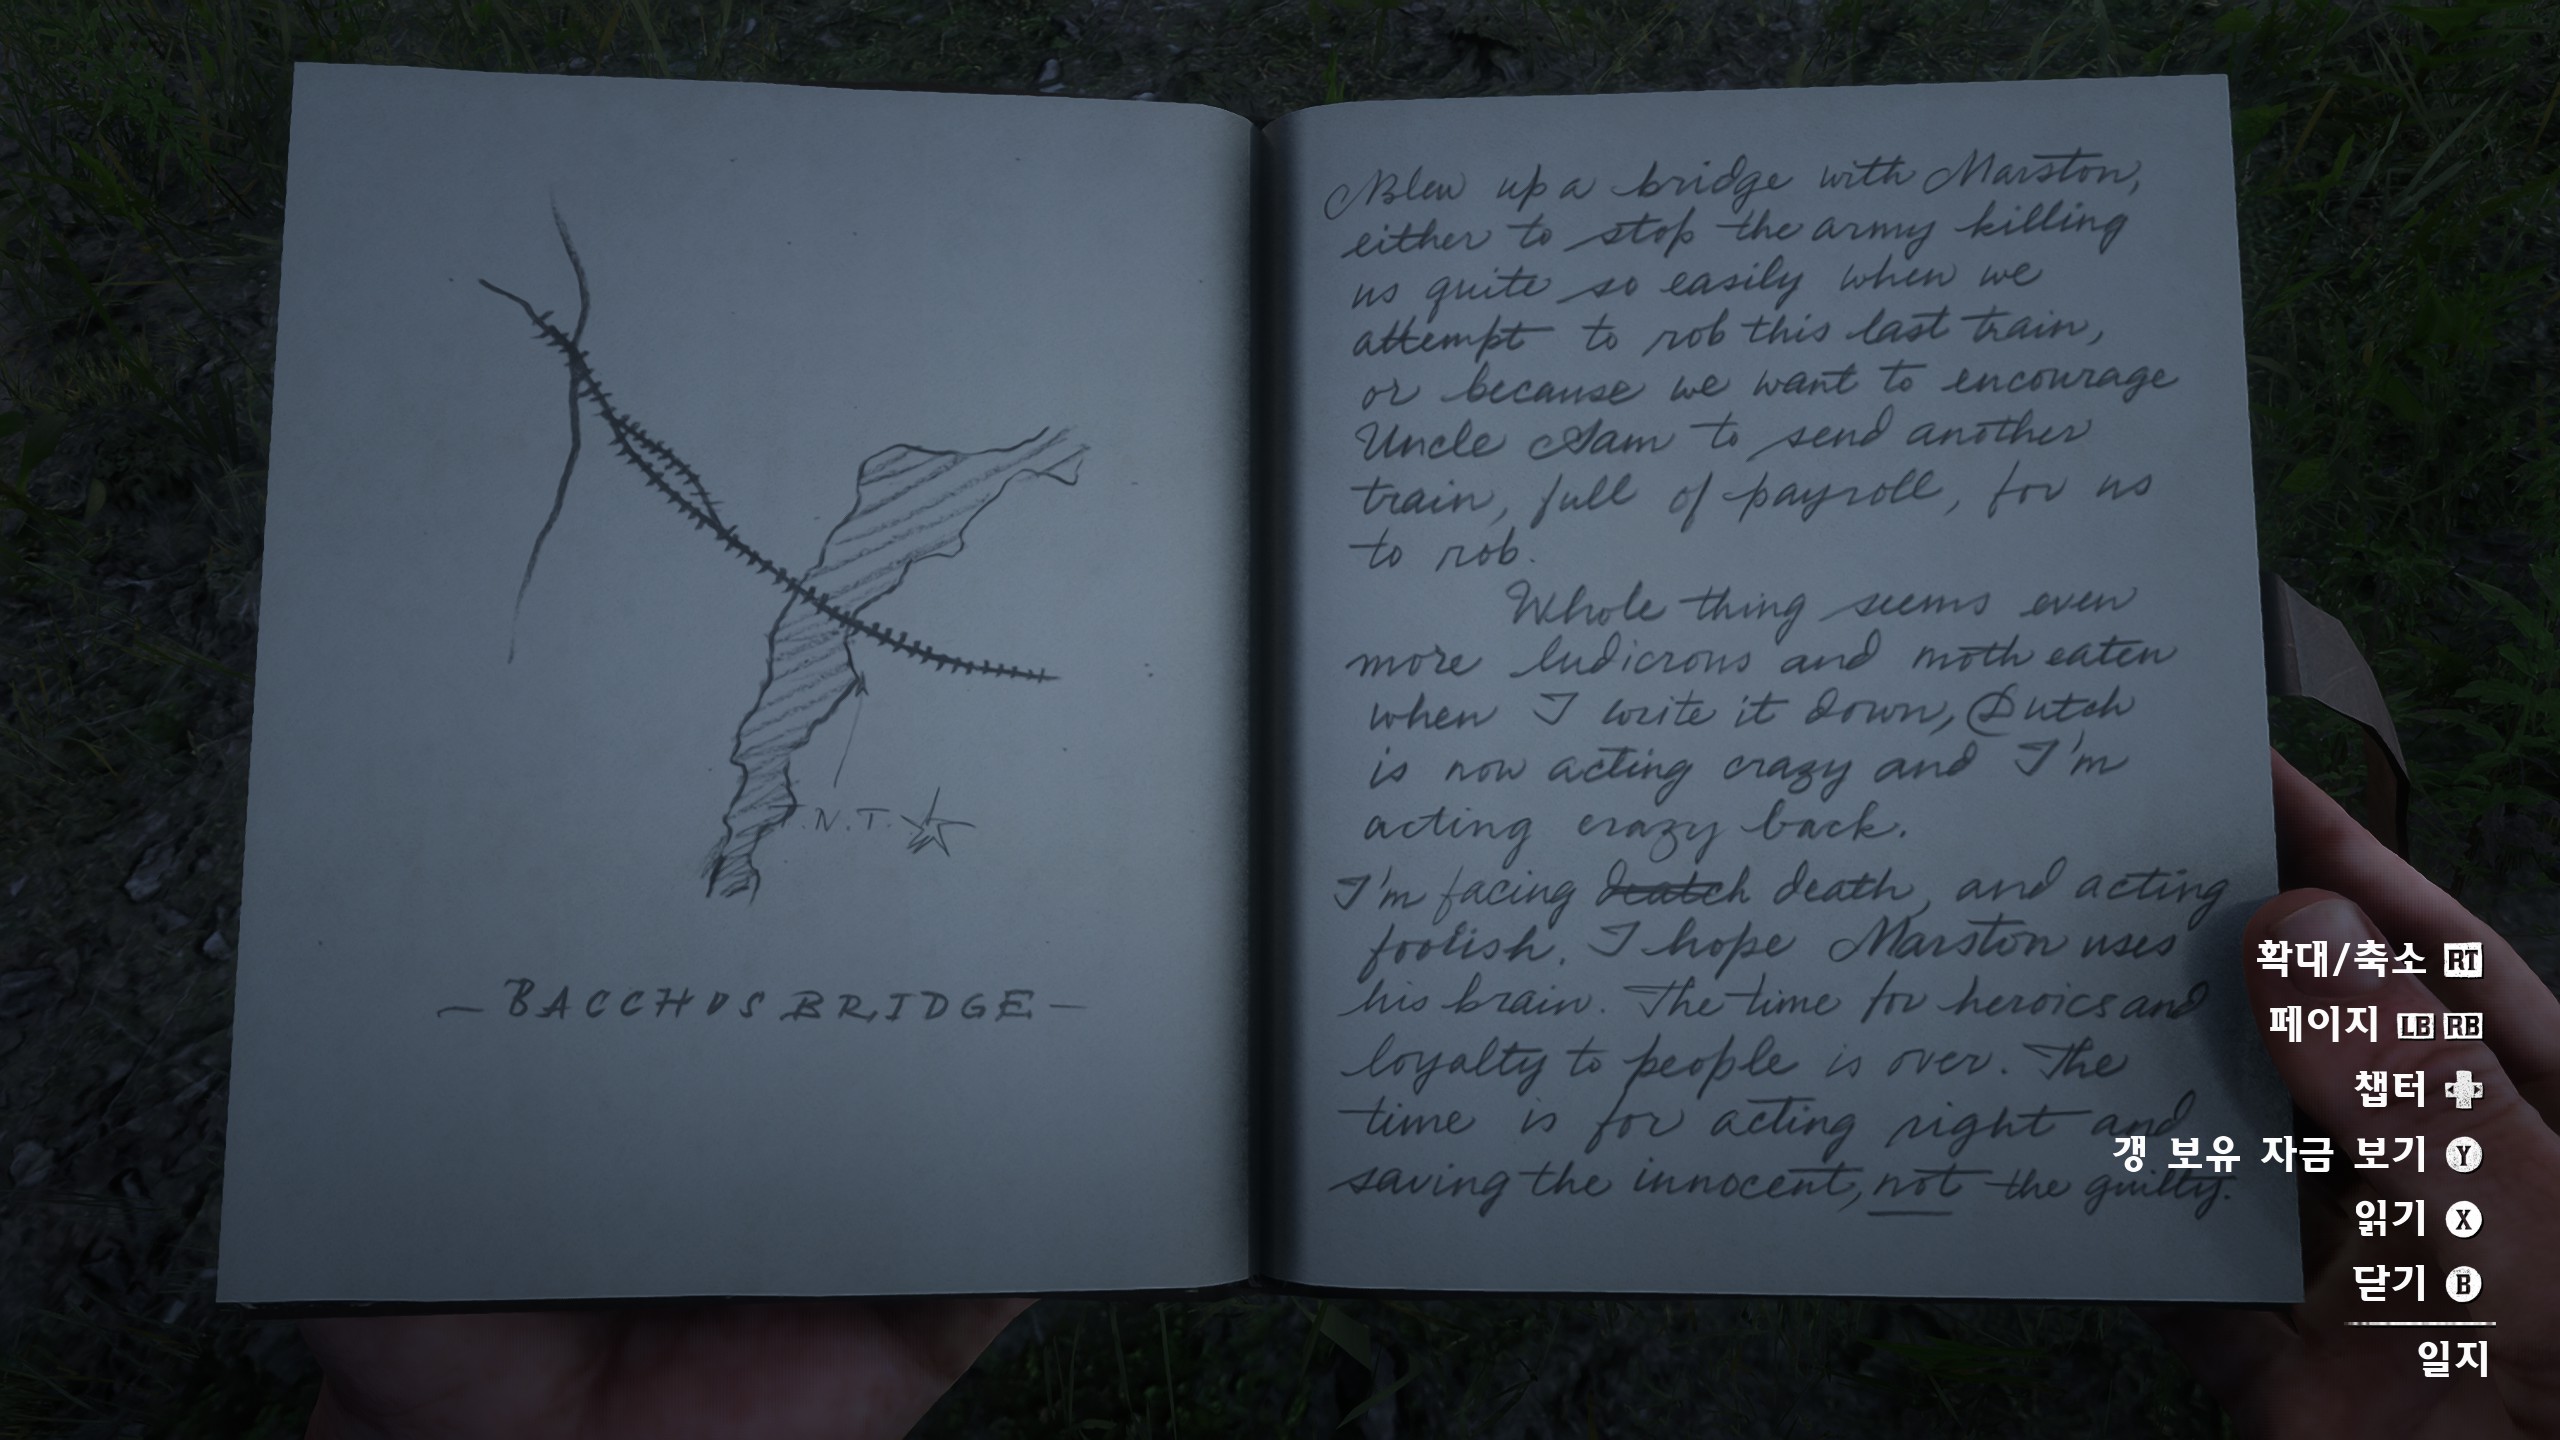 T.N.T.
— BACCHUS BRIDGE —
Blew up a bridge with Marston,
either to stop the army killing
us quite so easily when we
attempt to rob this last train,
or because we want to encourage
Uncle Sam to send another
train, full of payroll, for us
to rob.
Whole thing seems even
more ludicrous and moth eaten
when I write it down, Dutch
is now acting crazy and I'm
acting crazy back.
I'm facing death, and acting
foolish. I hope Marston uses
his brain. The time for heroics and
loyalty to people is over. The
time is for acting right and
saving the innocent, not the guilty.
확대/축소 RT
페이지 LB RB
챕터
갱 보유 자금 보기 Y
읽기 X
닫기 B
일지